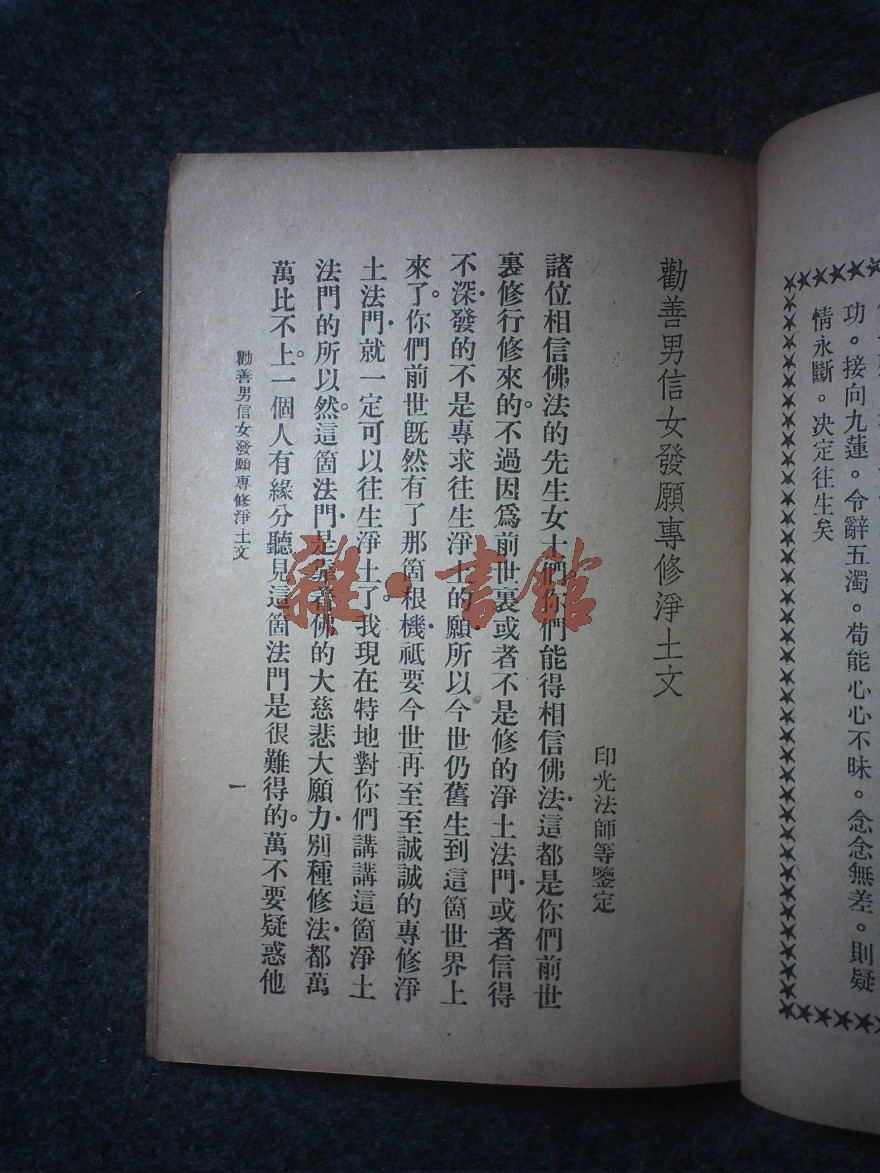 功。接向九蓮。令辭五濁。苟能心心不昧。念念無差。則疑
情永斷。決定往生矣
勸善男信女發願專修淨土文
印光法師等鑒定
諸位相信佛法的先生女士們你們能得相信佛法·這都是你們前世
裏修行修來的。不過因爲前世裏或者不是修的淨土法門·或者信得
不深·發的不是專求往生淨土的願·所以今世仍舊生到這箇世界上
來了。你們前世旣然有了那箇根機·祗要今世再至至誠誠的專修淨
土法門·就一定可以往生淨土了。我現在特地對你們講講這箇淨土
法門的所以然。這箇法門·是靠着佛的大慈悲大願力·別種修法·都萬
萬比不上。一個人有緣分聽見這箇法門是很難得的。萬不要疑惑他
勸善男信女發願專修淨土文
一
雜·書館